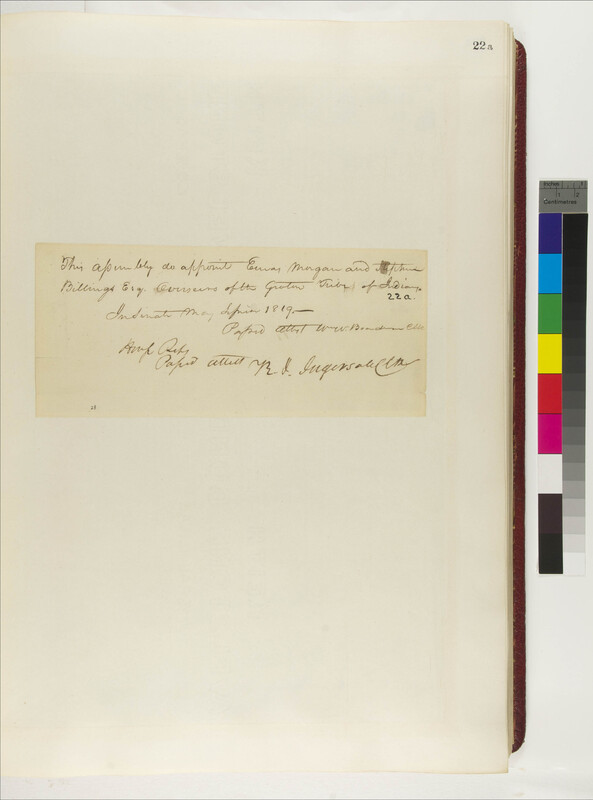 22a
This assembly do appoint Enos Morgan and Stephen
Billings Esq. Overseers of the Groton Tribe of Indians
22a.
In Senate May Session 1819.—
Passed attest Wm W. Boardman Clk
House Reps
Passed attest R. I. Ingersoll Clk
Inches 1
1 2
Centimetres